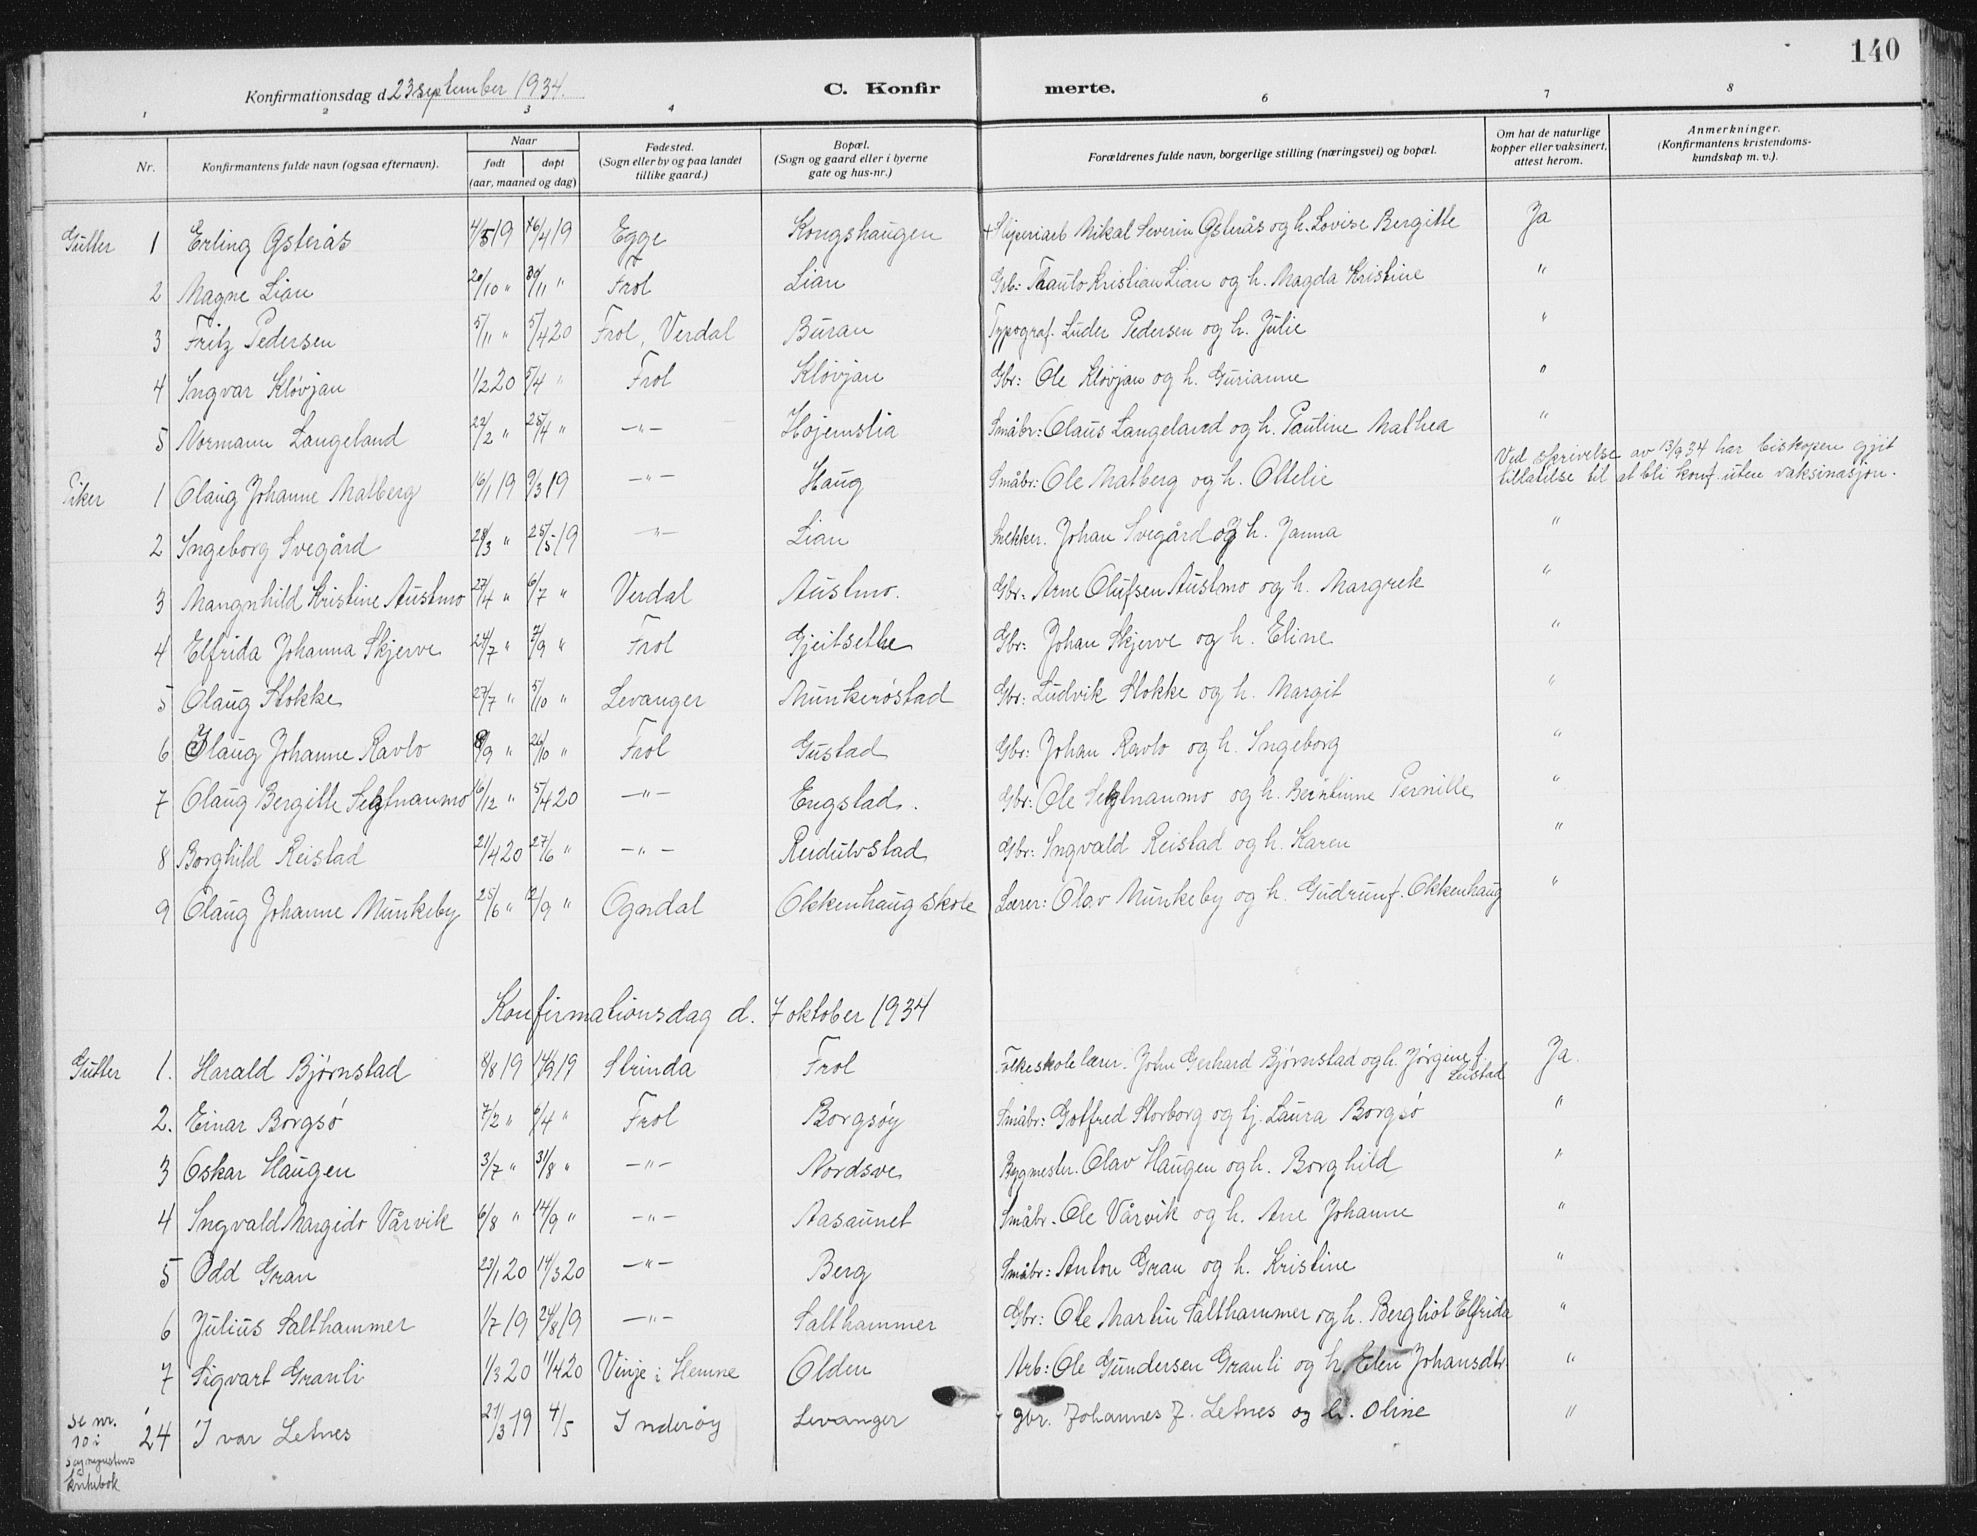 140
Konfirmationsdag d. 23 september 1934.
C. Konfirmerte.
1 2 3 4 6 7 8
Nr. Konfirmantens fulde navn (ogsaa efternavn). Naar født døpt (aar, maaned og dag) Fødested. (Sogn eller by og paa landet tillike gaard.) Bopæl. (Sogn og gaard eller i byerne gate og hus-nr.) Forældrenes fulde navn, borgerlige stilling (næringsvei) og bopæl. Om hat de naturlige kopper eller vaksinert, attest herom. Anmerkninger. (Konfirmantens kristendomskundskap m. v.).
Gutter 1 Erling Østerås 4/519 16/419 Egge Kongshaugen + Sliperiarb Mikal Severin Østerås og h. Lovise Bergitte Ja
2 Magne Lian 20/10 " 30/11 " Frol Lian Grb: Trauto Kristian Lian og h. Magda Kristine "
3 Fritz Pedersen 5/11 " 5/420 Frol, Verdal Buran Typograf. Luder Pedersen og h. Julie "
4 Ingvar Kløvjan 1/220 5/4 " Frol Kløvjan Gbr: Ole Kløvjan og h. Gurianne "
5 Normann Langeland 22/2 " 25/4 " —"— Hojemslia Småbr: Olaus Langeland og h. Pauline Mathea "
Piker 1 Olaug Johanne Matberg 16/119 9/319 —"— Haug Småbr: Ole Matberg og h. Ottelie Ved skrivelse av 13/934 har biskopen gjit tillatelse til at bli konf. uten vaksinasjon.
2 Ingeborg Svegård 28/3 " 25/519 —"— Lian Snekker. Johan Svegård og h. Janna "
3 Mangnhild Kristine Austmo 27/4 " 6/7 " Verdal Austmo. Gbr: Arne Olufsen Austmo og h. Margrek "
4 Elfrida Johanna Skjerve 24/7 " 7/9 " Frol Gjeitsethe Gbr: Johan Skjerve og h. Eline "
5 Olaug Stokke 27/7 " 5/10 " Levanger Munkerøstad Gbr: Ludvik Stokke og h. Margit "
6 Olaug Johanne Ravlo 8/9 " 26/10 " Frol Gustad Gbr: Johan Ravlo og h. Ingeborg "
7 Olaug Bergitte Segtnanmo 16/12 " 5/420 —"— Engstad. Gbr: Ole Segtnanmo og h. Berntinne Pernille "
8 Borghild Reistad 21/420 27/6 " —"— Reidulvstad Gbr: Ingvald Reistad og h. Karen "
9 Olaug Johanne Munkeby 25/6 " 12/9 " Ogndal Okkenhaug skole Lærer: Olav Munkeby og h. Gudrun f. Okkenhaug "
Konfirmationsdag d. 7 oktober 1934
Gutter 1. Harald Bjørnstad 8/819 14/919 Strinda Frol Folkeskolelærer. John Gerhard Bjørnstad og h. Jørgine f. Leistad Ja.
2. Einar Borgsø 7/2 " 6/4 " Frol Borgsøy Småbr: Gotfred Storborg og tj. Laura Borgsø "
3 Oskar Haugen 3/7 " 31/8 " —"— Nordsve Bygmester. Olav Haugen og h. Borghild "
4 Ingvald Margido Vårvik 6/8 " 14/9 " —"— Aasaunet Småbr. Ole Vårvik og h. Ane Johanne "
5 Odd Gran 23/120 14/320 —"— Berg Småbr: Anton Gran og h. Kristine "
6 Julius Salthammer 1/719 24/819 —"— Salthammer Gbr: Ole Martin Salthammer og h. Bergliot Elfrida "
7 Sigvart Granli 1/320 11/420 Vinje i Hemne Olden Arb: Ole Gundersen Granli og h. Elen Johansdtr "
se nr. 10 i sogneprestens kirkebok 24 Ivar Letnes 21/319 4/5 Inderøy Levanger gbr. Johannes J. Letnes og h. Oline "